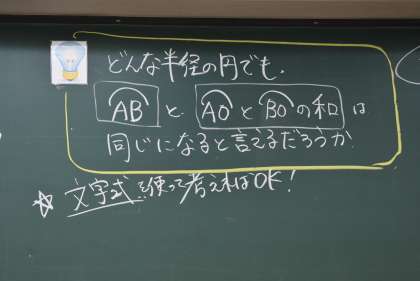 どんな半径の円でも、
AB と AOとBOの和 は
同じになると言えるだろうか
☆文字式を使って考えればOK!